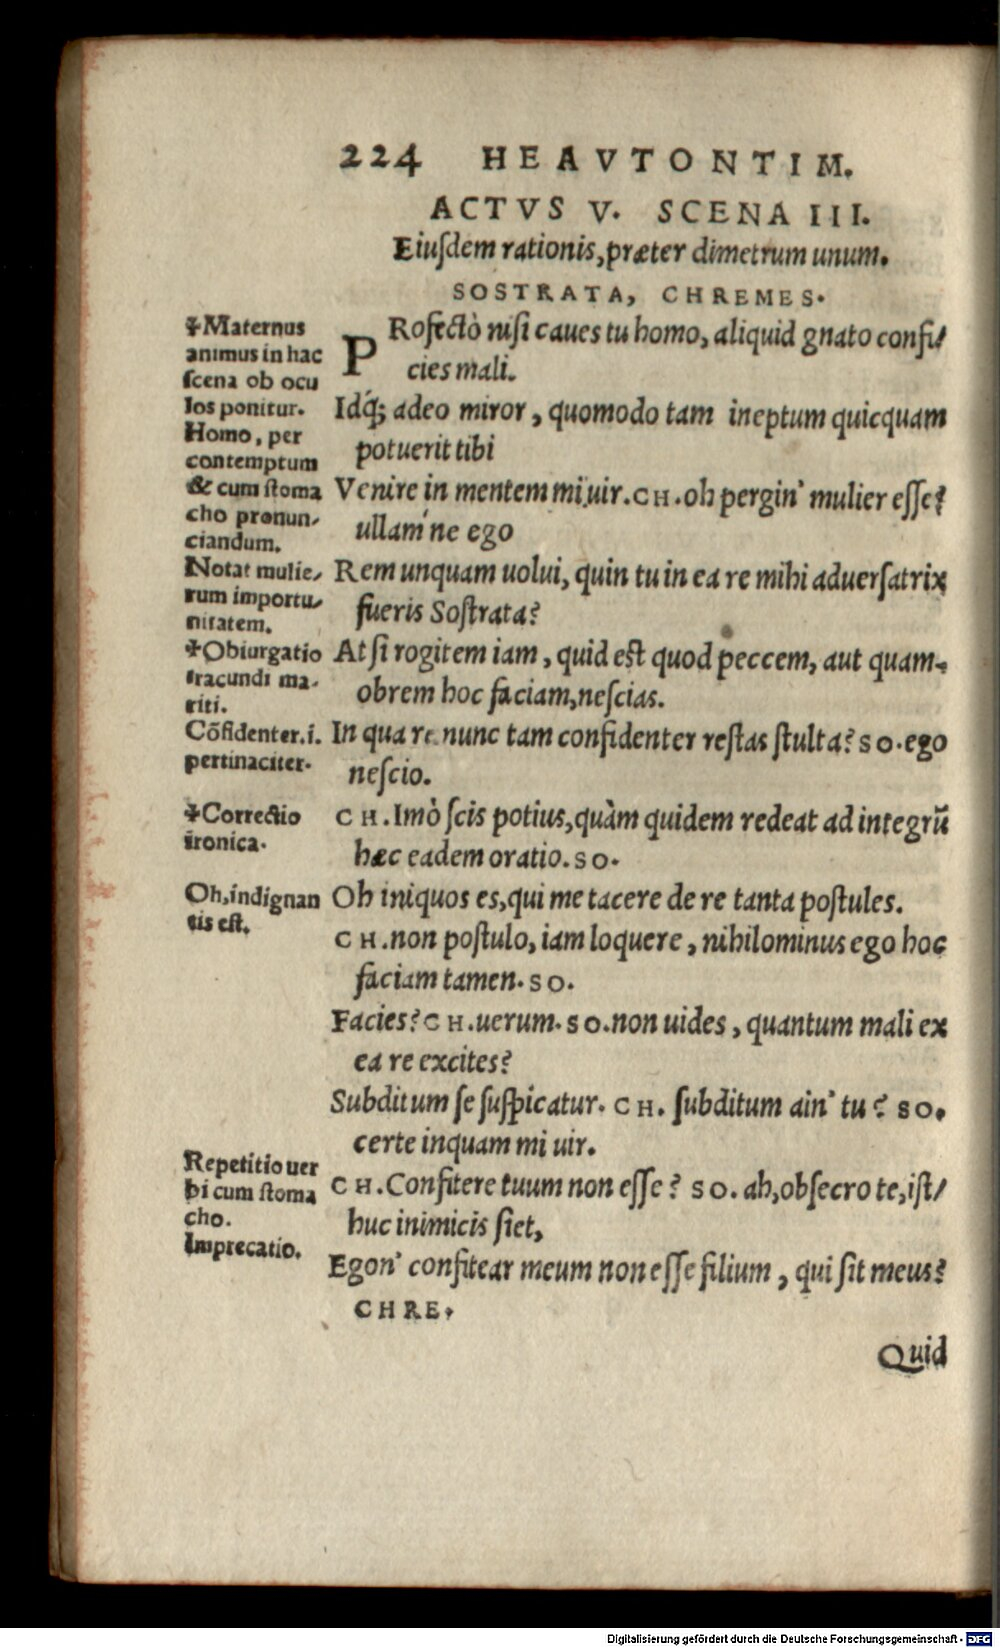 224 HEAVTONTIM.
ACTVS V. SCENA III.
Eiuſdem rationis, præter dimetrum unum.
SOSTRATA, CHREMES.
PRofectò niſi caues tu homo, aliquid gnato confi/
cies mali.
Idq́; adeo miror, quomodo tam ineptum quicquam
potuerit tibi
Venire in mentem mi uir. CH. oh pergin' mulier eſſe?
ullam'ne ego
Rem unquam uolui, quin tu in ea re mihi aduerſatrix
fueris Soſtrata?
At ſi rogitem iam, quid eſt quod peccem, aut quam-
obrem hoc faciam, neſcias.
In qua re nunc tam confidenter reſtas ſtulta? SO. ego
neſcio.
CH. Imò ſcis potius, quàm quidem redeat ad integrũ
hæc eadem oratio. SO.
Oh iniquos es, qui me tacere de re tanta poſtules.
CH. non poſtulo, iam loquere, nihilominus ego hoc
faciam tamen. SO.
Facies? CH. uerum. SO. non uides, quantum mali ex
ea re excites?
Subditum ſe ſuſpicatur. CH. ſubditum ain' tu? SO.
certe inquam mi uir.
CH. Confitere tuum non eſſe? SO. ah, obſecro te, iſt/
huc inimicis ſiet,
Egon' confitear meum non eſſe filium, qui ſit meus?
CHRE.
Quid
✠Maternus
animus in hac
ſcena ob ocu
los ponitur.
Homo, per
contemptum
& cum ſtoma
cho pronun/
ciandum.
Notat mulie/
rum importu/
nitatem.
✠Obiurgatio
iracundi ma-
riti.
Cõfidenter. i.
pertinaciter.
✠Correctio
ironica.
Oh, indignan
tis eſt.
Repetitio uer
bi cum ſtoma
cho.
Imprecatio.
Digitalisierung gefördert durch die Deutsche Forschungsgemeinschaft - DFG